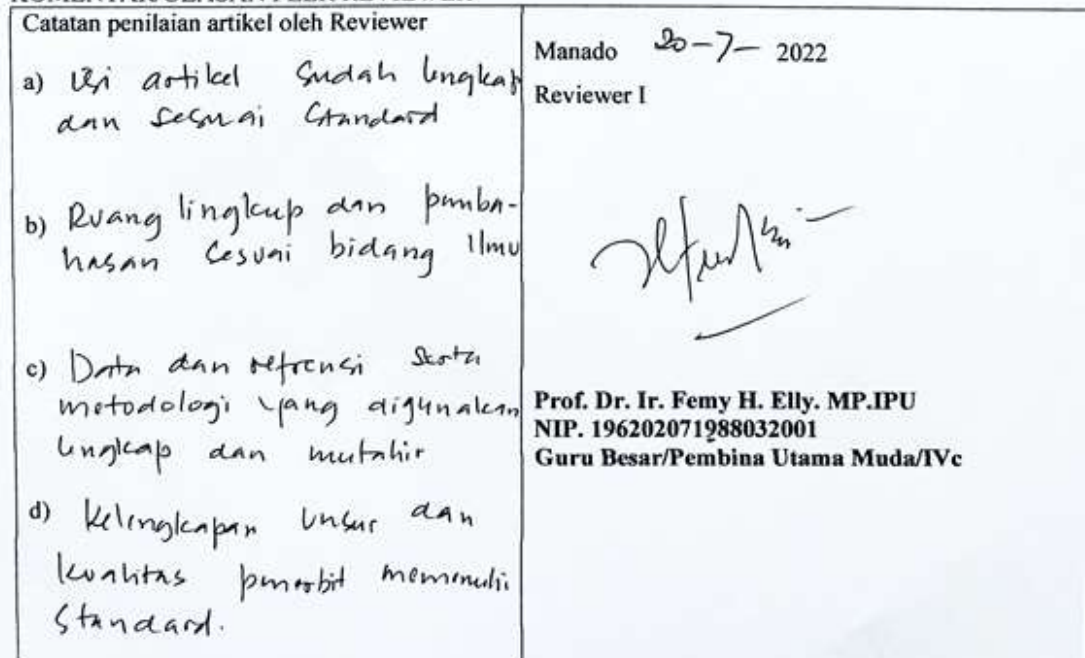 Catatan penilaian artikel oleh Reviewer
a) Isi artikel sudah lengkap
dan sesuai standard
b) Ruang lingkup dan pemba-
hasan sesuai bidang Ilmu
c) Data dan refrensi serta
metodologi yang digunakan
lengkap dan mutahir
d) Kelengkapan unsur dan
kualitas penerbit memenuhi
Standard.
Manado 20-7- 2022
Reviewer I
Prof. Dr. Ir. Femy H. Elly. MP.IPU
NIP. 196202071988032001
Guru Besar/Pembina Utama Muda/IVc